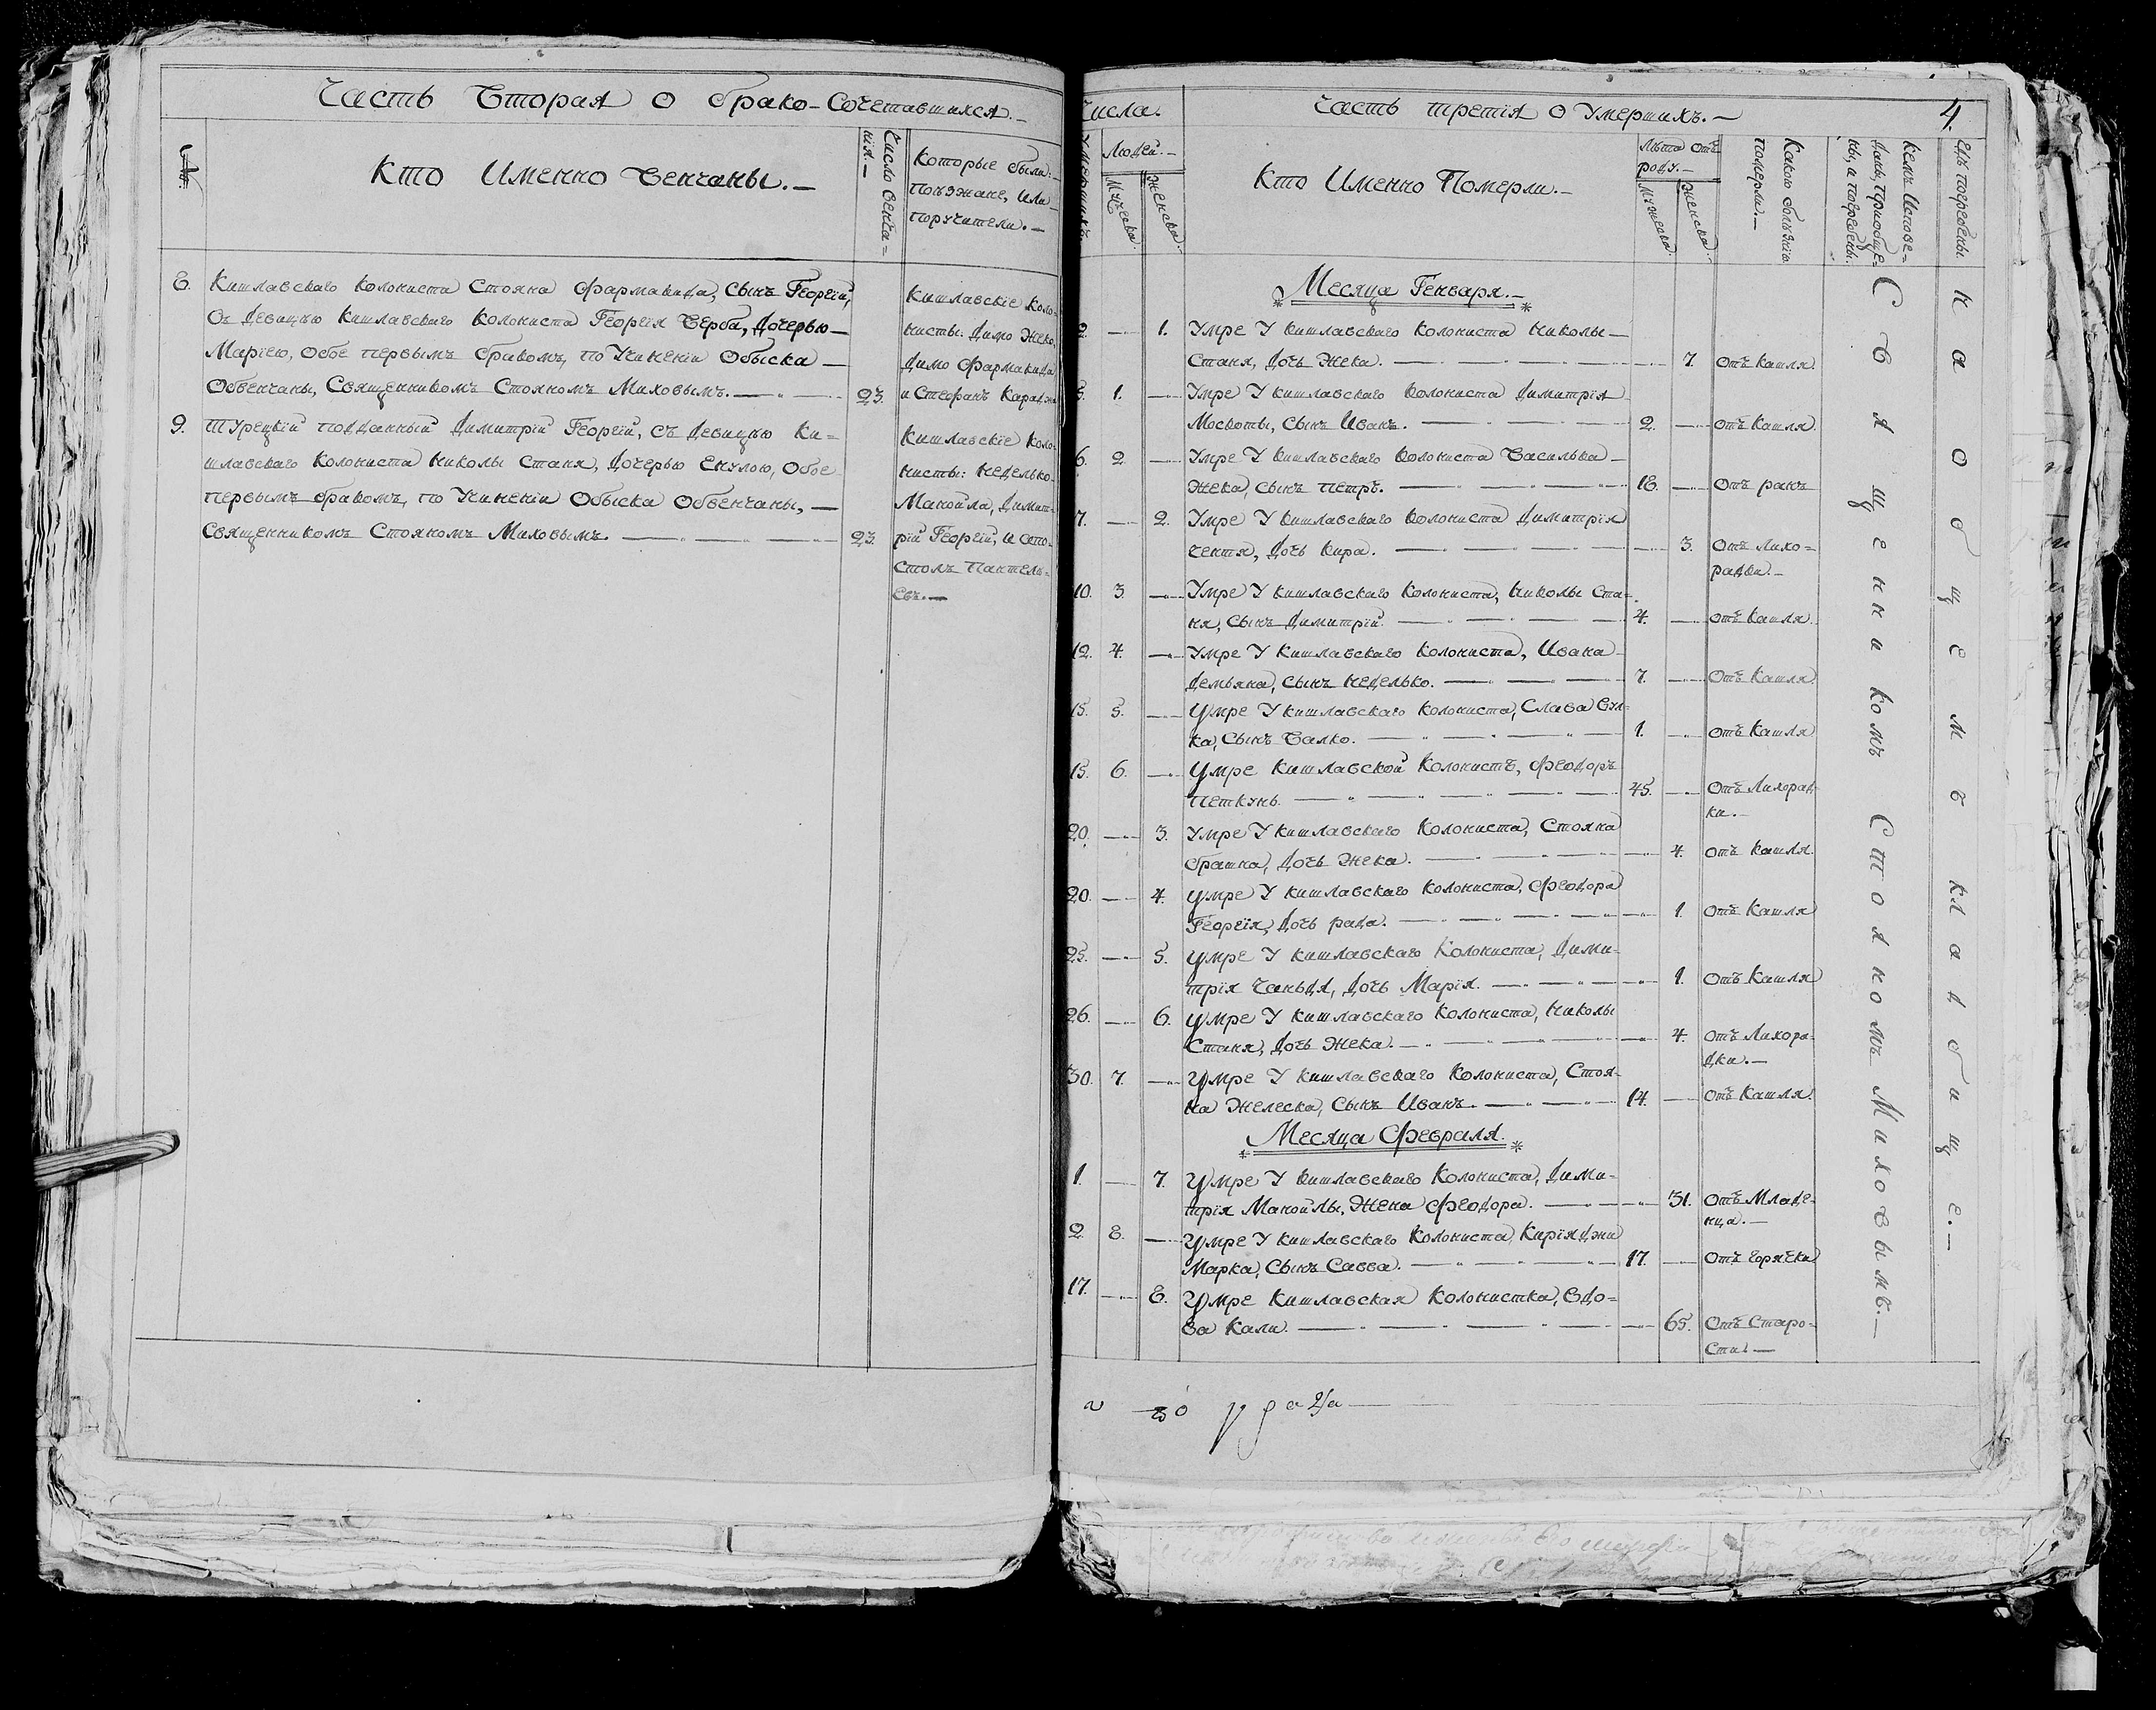 Часть Вторая О Брако-Сочетавшихся.—
№.
Кто Именно Венчаны.—
Число Венча=
нія.—
Которые были:
поѣзжане, или
поручители.—
8. Кишлавскаго Колониста Стояна Фармакида, Сынъ Георгій,
Съ Девицею Кишлавскаго Колониста Георгія Верба, Дочерью—
Маріею, Обое первымъ бракомъ, по Учиненіи Обыска—
Обвенчаны, Священникомъ Стояномъ Миховымъ.— 23.
Кишлавскіе Коло-
нисты: Димо Жеко,
Димо Фармакида
и Стефанъ Караджа
9. Турецкій подданный Димитрій Георгій, съ Девицею Ки=
шлавскаго Колониста Николы Станя, Дочерью Енулою, Обое
первымъ бракомъ, по Учиненіи Обыска Обвенчаны,—
Священникомъ Стояномъ Миховымъ.— 23.
Кишлавскіе Коло-
нисты: Неделько
Манойла, Димит-
рій Георгій, и Апо-
столъ Пантелѣ=
евъ.—
Числа.
Часть третія О Умершихъ.—
4.
Умершихъ.
Людей.—
Мужеска.
Женска.
Кто Именно Померли.—
Лѣта отъ
роду.—
Мужеска.
Женска.
Какою болѣзнію
померли.—
Кемъ Испове=
даны, приобще=
ны, и погребены.
Где погребены
Месяца Генваря.—
2. — 1. Умре У Кишлавскаго Колониста Николы—
Станя, Дочь Жека.— 7. отъ Кашля.
5. 1. — Умре У Кишлавскаго Колониста Димитрія
Москоты, Сынъ Иванъ.— 2. — отъ Кашля.
6. 2 — Умре У Кишлавскаго Колониста Василька—
Жека, Сынъ Петръ.— 18. — Отъ ранъ
7. — 2. Умре У Кишлавскаго Колониста Димитрія
Ченгя, Дочь Кира.— 3. Отъ Лихо=
радки.—
10. 3. — Умре У Кишлавскаго Колониста, Николы Ста-
ня, Сынъ Димитрій.— 4. — отъ Кашля.
12. 4. — Умре У Кишлавскаго Колониста, Ивана—
Демьяна, Сынъ Неделько.— 7. — отъ Кашля
15. 5. — Умре У Кишлавскаго Колониста, Слава Вул-
ка, Сынъ Валко.— 1. — отъ Кашля
15. 6. — Умре Кишлавской Колонистъ, Феодоръ
Петкунь.— 45. — Отъ Лихорад-
ки.—
20. — 3. Умре У Кишлавскаго Колониста, Стояна
Брашна, Дочь Жека.— 4. отъ Кашля.
20. — 4. Умре У Кишлавскаго Колониста, Феодора
Георгія, Дочь рада.— 1. отъ Кашля
25. — 5. Умре У Кишлавскаго Колониста, Дими-
трія Чаньдя, Дочь Марія.— 1. отъ Кашля
26. — 6. Умре У Кишлавскаго Колониста, Николы
Станя, Дочь Жека.— 4. отъ Лихора-
дки.—
30. 7. — Умре У Кишлавскаго Колониста, Стоя-
на Желеска, Сынъ Иванъ.— 14. — отъ Кашля.
Месяца Февраля.
1. — 7. Умре У Кишлавскаго Колониста, Дими-
трія Манойлы, Жена Феодора.— 31. отъ Младе-
нца.—
2. 8. — Умре У Кишлавскаго Колониста Кирїяджи
Марка, Сынъ Савва.— 17. — отъ Горячки
17. — 8. Умре Кишлавская Колонистка, Вдо=
ва Кали.— 65. Отъ Старо-
Сти.—
Священникомъ Стояномъ Миховымъ.—
На общемъ кладбище.—